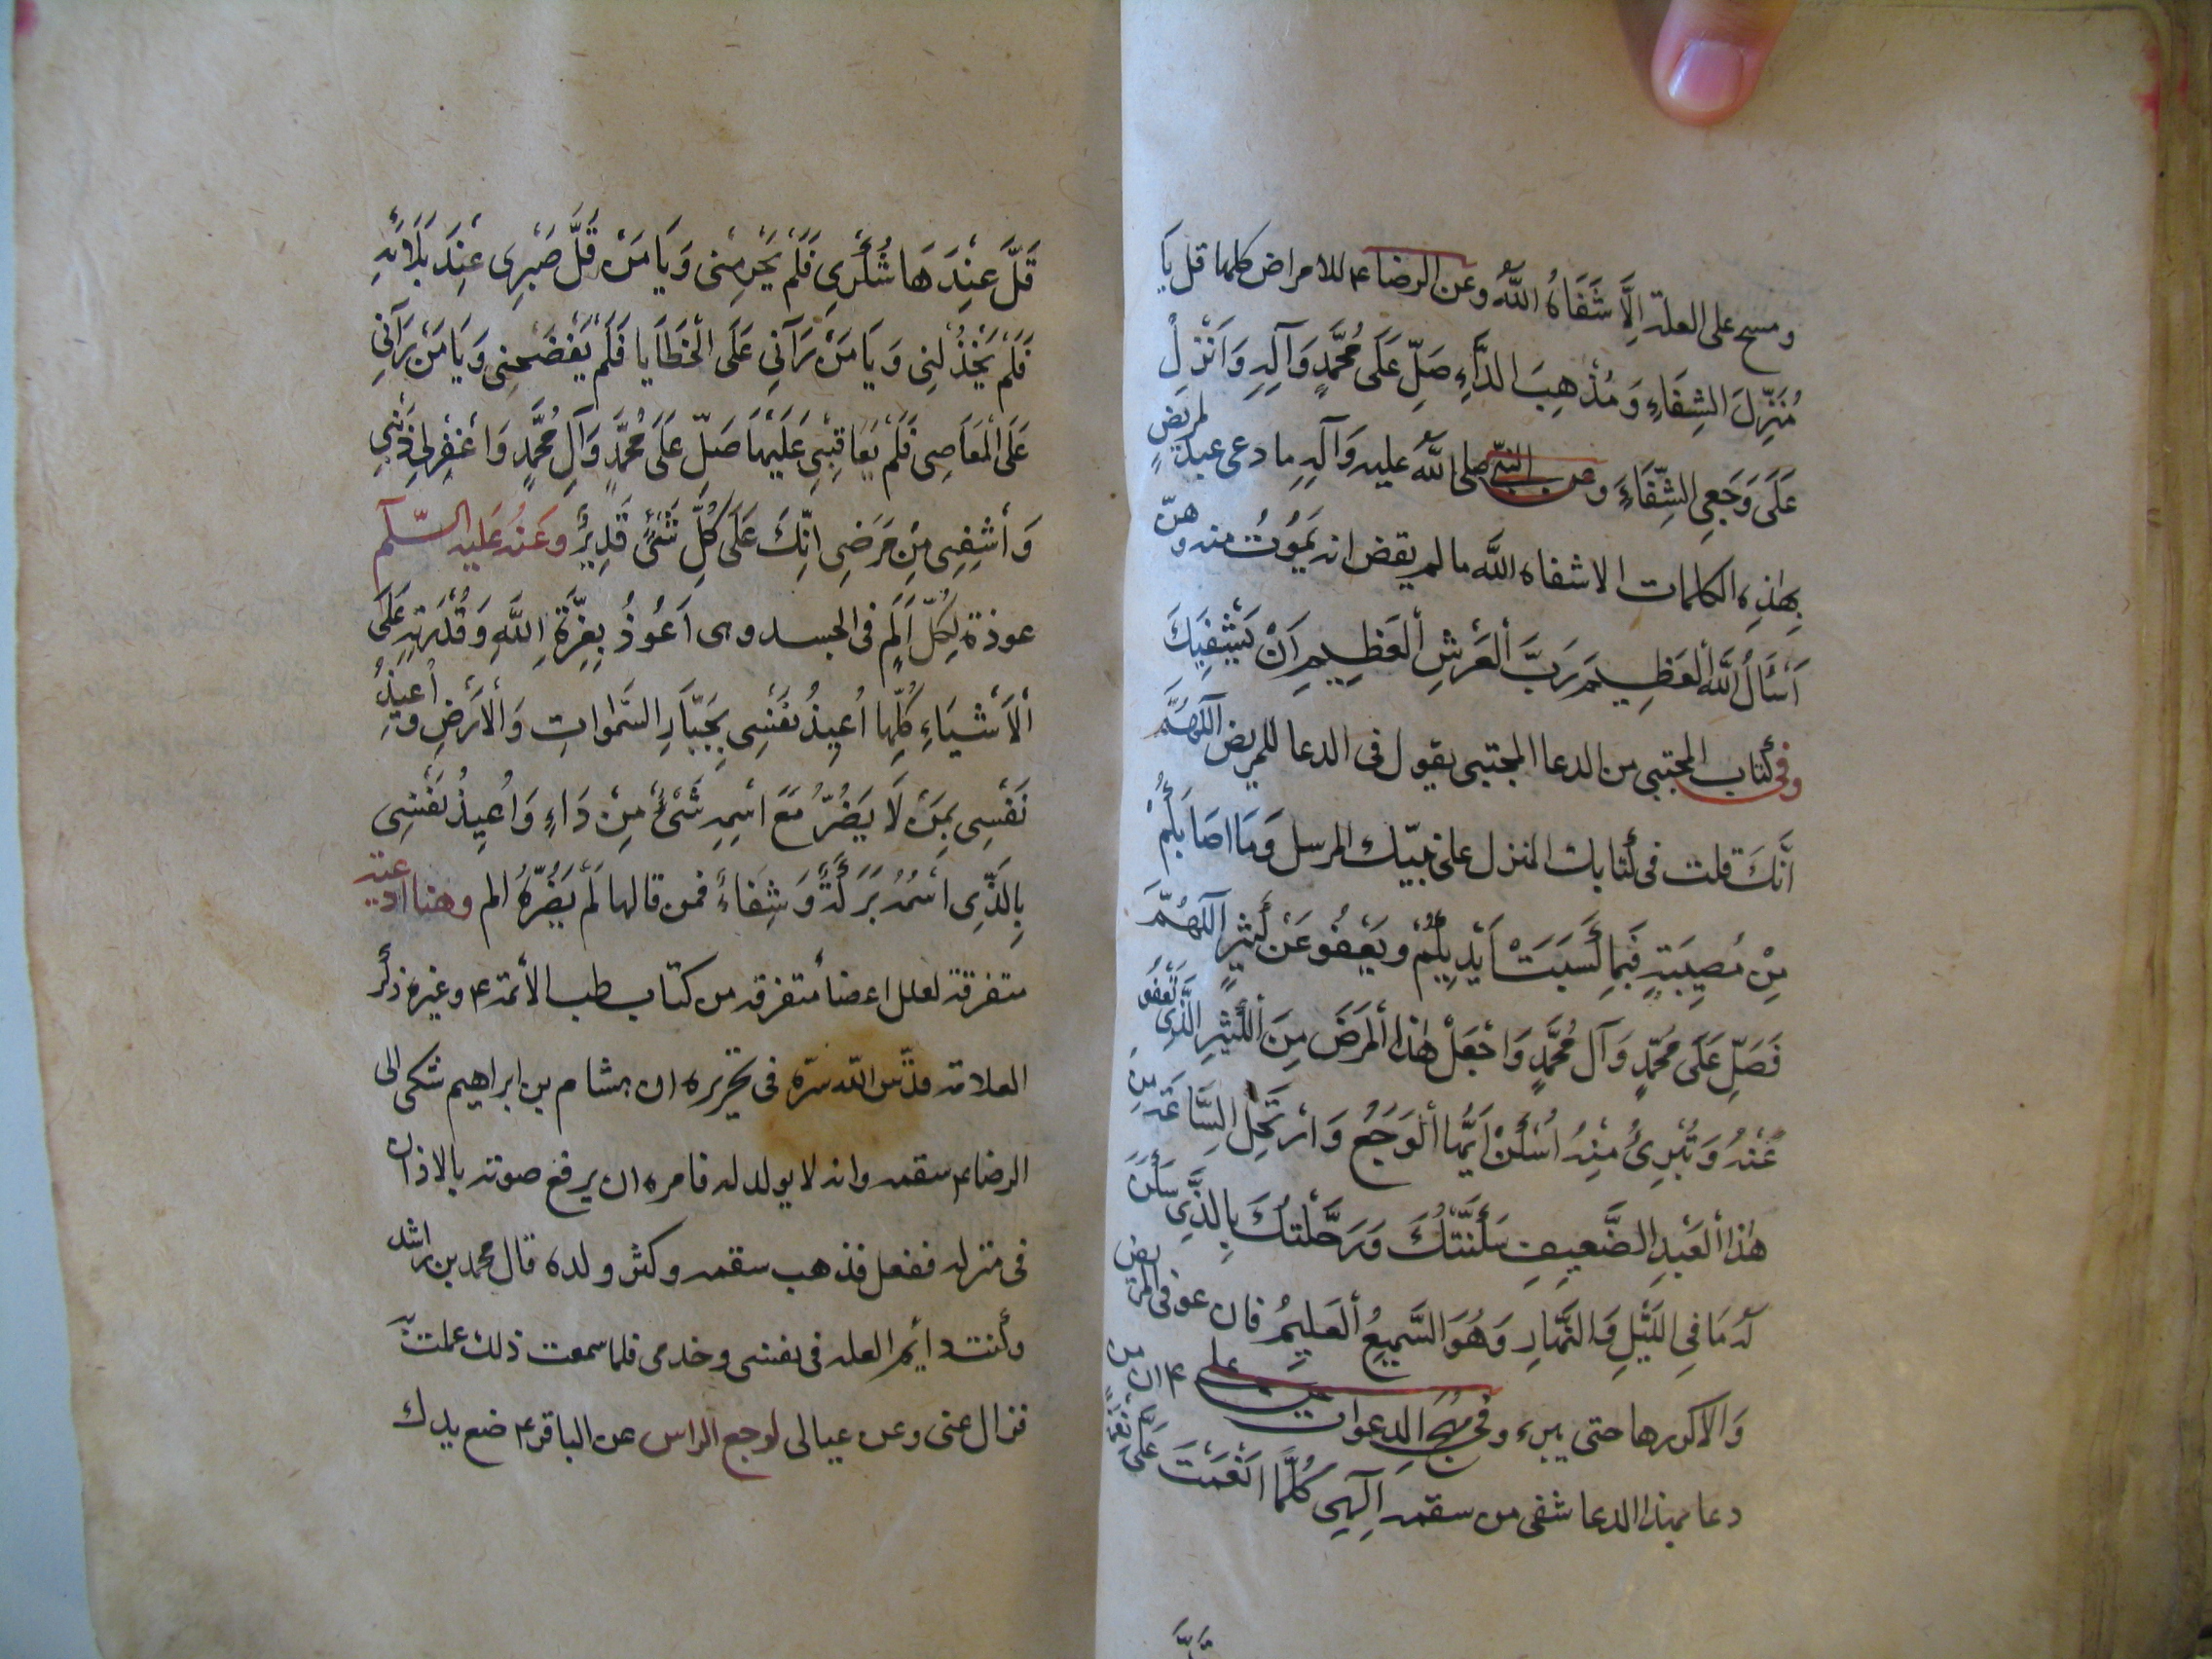 ومسح على العلة اِلَّا شَفَاهُ اللّٰهُ وعن الرضا ع للامراض كلها قل يَا
مُنَزِّلَ الشِفَاءِ وَ مُذْهِبَ الدَّاءِ صَلِّ عَلَى مُحَمَّدٍ وَآلِهِ وَ اَنْزِلْ
عَلَى وَجَعِى الشِّفَاءَ وعن النبى صلى اللّٰه عليه وَآلِهِ ما دعى عبد لمريضٍ
بِهٰذِه الكلمات الا شفاه اللّٰه ما لم يقض انه يَمُوتُ منه وهنّ
اَسْأَلُ اللّٰهَ اْلعَظِيمَ رَبَّ اْلعَرْشِ اْلعَظِيمِ اَنْ يَشْفِيَكَ
وفى كتاب المجتبى من الدعا المجتبى يقول فى الدعا للمريض اَللّٰهُمَّ
انَّكَ قلت فى كتابك المنزل على نبيّك المرسل وَمَا اصَابَكُمْ
مِنْ مُصِيبَةٍ فَبِمَا كَسَبَتْ اَيْدِيكُمْ و يَعْفُو عَنْ كَثِيرٍ اَللّٰهُمَّ
فَصَلِّ عَلَى مُحَمَّدٍ وَ آل مُحَمَّدٍ وَاجْعَلْ هٰذَا اْلمَرَضَ مِنَ اْلكَثِيرِ الَّذِى تَعْفُو
عَنْهُ وَ تُبْرِئُ مِنْهُ اُسْكُنْ اَيُّهَا اْلوَجَعُ وَ ارْتَحِلِ السَّاعَةَ مِنْ
هٰذَا اْلعَبْدِ الضَّعِيفِ سَكَّنْتُكَ وَ رَحَّلْتُكَ بِالَّذِى سَكَنَ
لَهُ مَا فِى اللَّيْلِ وَ النَّهَارِ وَ هُوَ السَّمِيعُ اْلعَلِيمُ فان عوفى المريض
وَ الا كررها حتى يبرء و فى مهج الدعوات عن على ع ان من
دعا بهذا الدعا شفى من سقمه اِلٰهِى كُلَّمَا اَنْعَمْتَ عَلَىَّ نِعْمَةً
قَلَّ عِنْدَهَا شُكْرِى فَلَمْ يَحْرِمْنِى وَ يَا مَنْ قَلَّ صَبْرِى عِنْدَ بَلَائِهِ
فَلَمْ يَخْذُلْنِى وَ يَا مَنْ رَآنِى عَلَى الْخَطَايَا فَلَمْ يَفْضَحْنِى وَ يَا مَنْ رَآنِى
عَلَى الْمَعَاصِى فَلَمْ يُعَاقِبْنِى عَلَيْهَا صَلِّ عَلَى مُحَمَّدٍ وَ آلِ مُحَمَّدٍ وَ اغْفِرْ لِى ذَنْبِى
وَ اشْفِنِى مِنْ مَرَضِى اِنَّكَ عَلَى كُلِّ شَىْءٍ قَدِيرٌ وَ عَنْهُ عَلَيه السّلم
عوذة لِكُلِّ اَلَمٍ فى الجسد وهى اَعُوذُ بِعِزَّةِ اللّٰهِ وَ قُدْرَتِهِ عَلَى
اْلاَشْيَاءِ كُلِّهَا اُعِيذُ نَفْسِى بِجَبَّارِ السَّمٰوَاتِ وَ اْلاَرْضِ وَ اُعِيذُ
نَفْسِى بِمَنْ لَا يَضُرُّ مَعَ اسْمِهِ شَىْءٌ مِنْ دَاءٍ وَ اُعِيذُ نَفْسِى
بِالَّذِى اسْمُهُ بَرَكَةٌ وَ شِفَاءٌ فمن قالها لَمْ يَضُرَّهُ الم وهنا ادعية
متفرقة لعلل اعضاء متفرقه من كتاب طب الأئمة ع وغيره ذكر
العلامة قدّس اللّه سرّه فى تحريره ان هشام بن ابراهيم شكى الى
الرضا ع سقمه وانه لا يولد له فامره ان يرفع صوته بالاذان
فى منزله ففعل فذهب سقمه وكثر ولده قال محمد بن راشد
وكنت دايم العله فى نفسى وخدمى فلما سمعت ذلك عملت به
فزال عنى وعن عيالى لوجع الراس عن الباقر ع ضع يدك